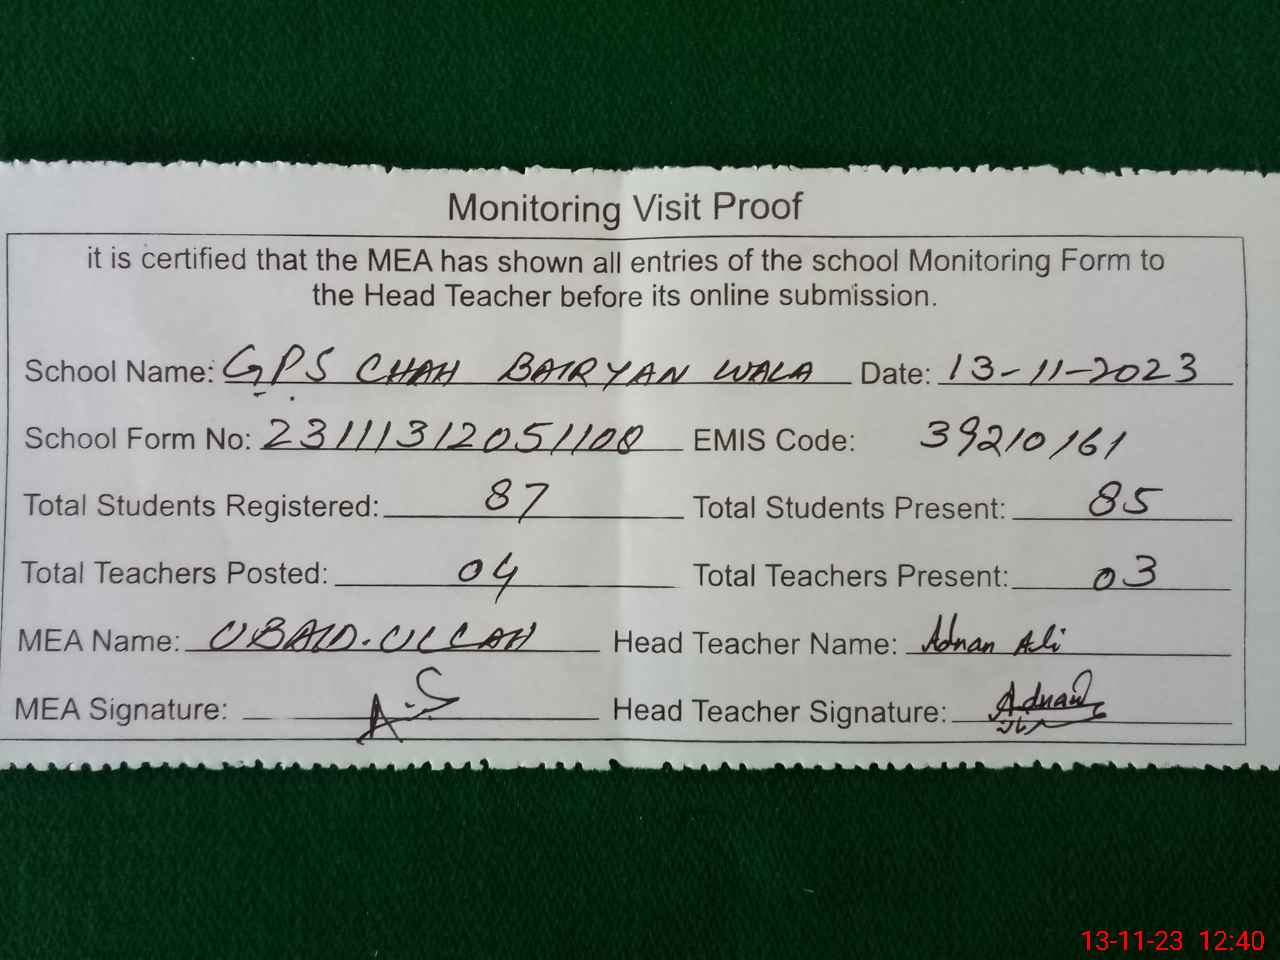 Monitoring Visit Proof
it is certified that the MEA has shown all entries of the school Monitoring Form to
the Head Teacher before its online submission.
School Name: GPS CHAH BAIRYAN WALA Date: 13-11-2023
School Form No: 23111312051108 EMIS Code: 39210161
Total Students Registered: 87 Total Students Present: 85
Total Teachers Posted: 04 Total Teachers Present: 03
MEA Name: UBAID.ULLAH Head Teacher Name: Adnan Ali
MEA Signature: Head Teacher Signature: Adnan
13-11-23 12:40